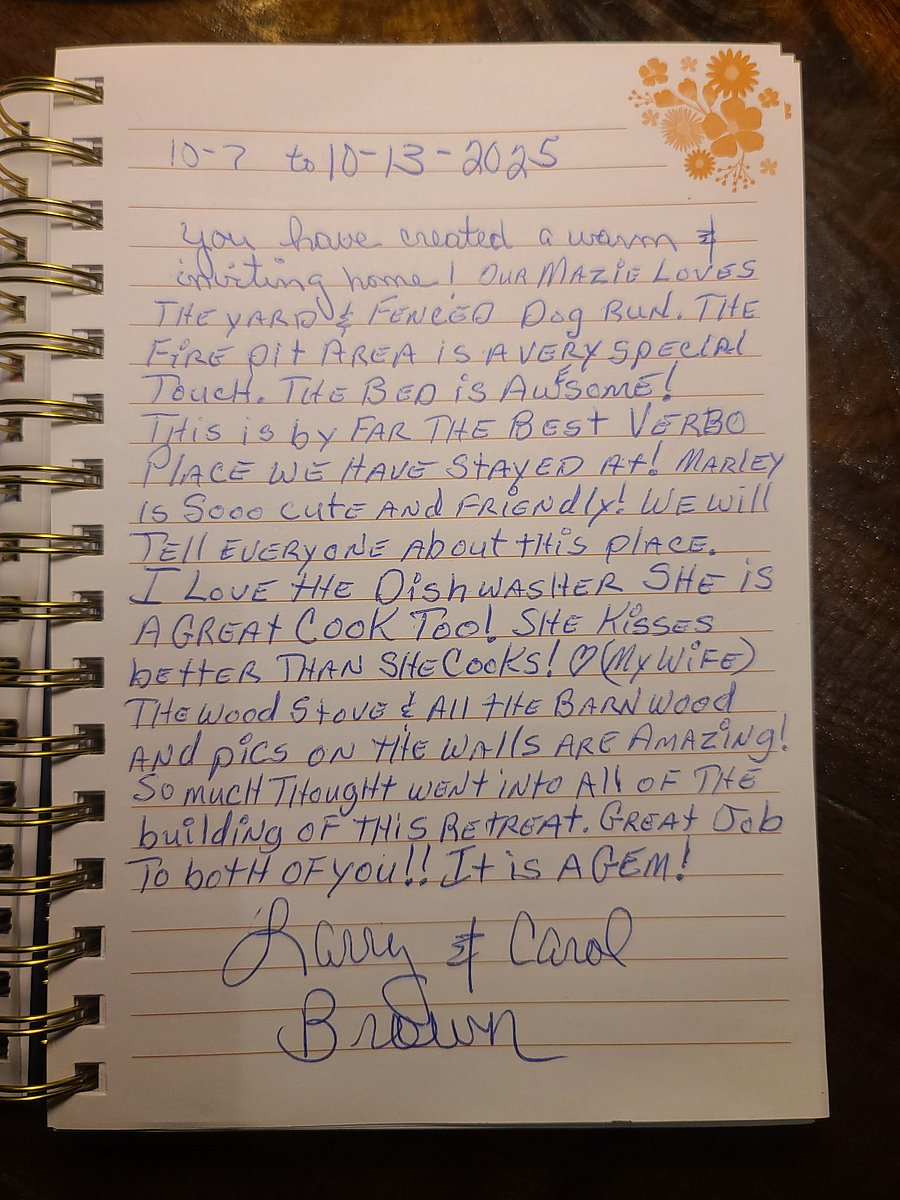 10-7 to 10-13-2025
you have created a warm &
inviting home! OUR MAZIE LOVES
THE YARD & FENCED Dog RUN. THE
FiRE pit AREA is A VERY SpECiAl
Touch. THE BED is AWESOME!
THis is by FAR THE BEst VERBO
PLACE WE HAVE StAYED At! MARLEY
is Sooo cutE AND FRiENDly! WE Will
TEll EVERYONE About tHis plACE.
I LOVE tHE DishwASHER SHE is
A GREAt COOK Too! SHE KiSSES
bEttER THAN SHE COOKS! ♡(My WiFE)
THE wood StovE & All tHE BARN WOOD
AND piCS ON tHE WAllS ARE AMAZiNg!
So mucH THougHt WENt iNTO All OF THE
builDiNg OF THiS REtREAt. GREAt Job
To botH OF you!! It is A GEM!
Larry & Carol
Brown